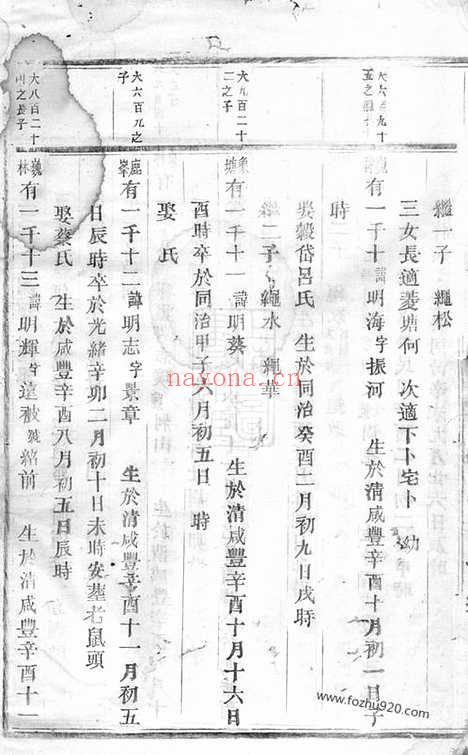 繼一子 繩松
三女長適菱塘何 次適下卜宅卜 幼
有一千十 諱明海字振河 生於清咸豐辛酉十月初一日子
時
娶穀岱呂氏 生於同治癸酉二月初九日戌時
繼二子 繩水 繩華
大九百二十
二之子
象塘
有一千十一 諱明葵 生於清咸豐辛酉十月十六日
酉時卒於同治甲子六月初五日 時
娶 氏
大六百九之
子
鹿峯
有一千十二 諱明志字景章 生於清咸豐辛酉十一月初五
日辰時卒於光緒辛卯二月初十日未時安塋老鼠頭
娶蔡氏 生於咸豐辛酉八月初五日辰時
大八百二十
之長子
林
有一千十三 諱明輝字遠被號緒前 生於清咸豐辛酉十一
nayona.cn
www.fozhu920.com